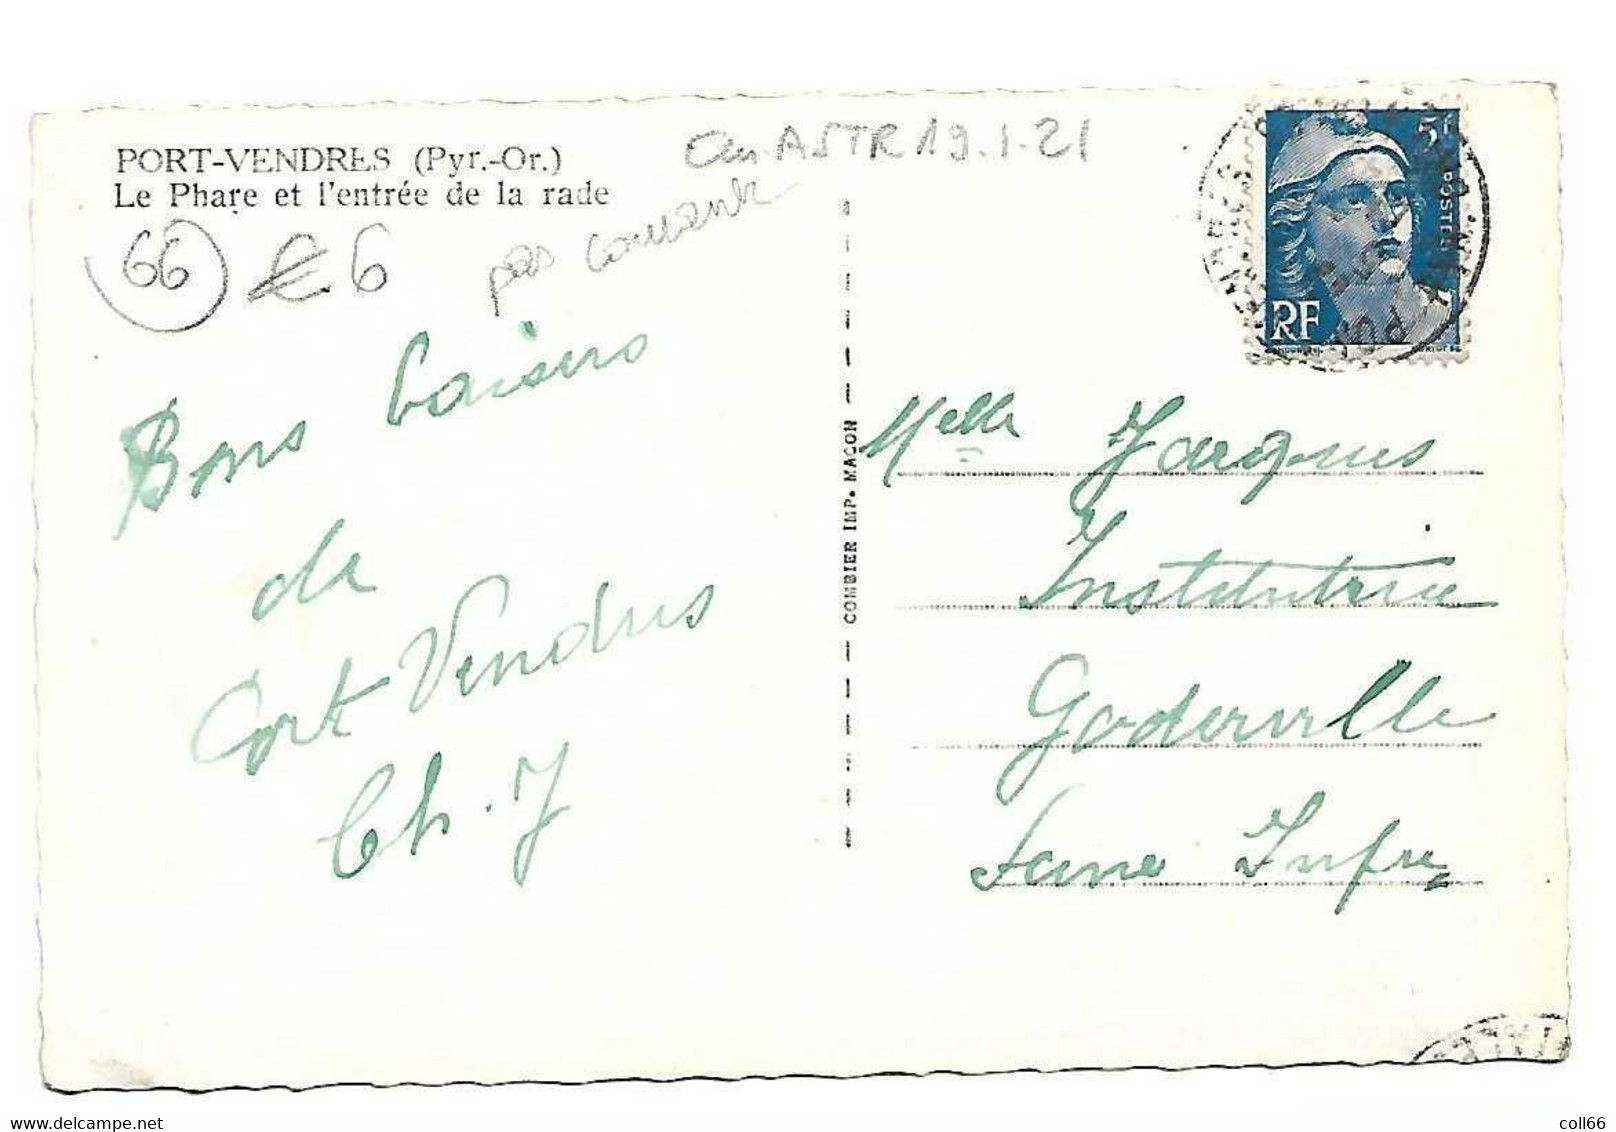 PORT-VENDRES (Pyr.-Or.)
Le Phare et l'entrée de la rade
ASTR 19.1.21
66 € 6
pas courante
Bons baisers
de
Port Vendres
Ch. J
COMBIER IMP. MACON
5F
POSTES
RF
Melle Jacques
Institutrice
Goderville
Seine Infre
© www.delcampe.net
coll66